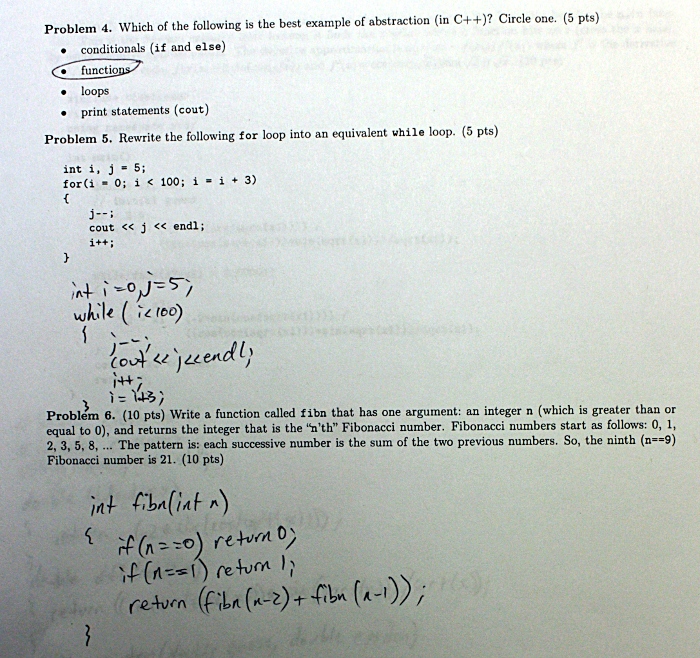 Problem 4. Which of the following is the best example of abstraction (in C++)? Circle one. (5 pts)
• conditionals (if and else)
• functions
• loops
• print statements (cout)
Problem 5. Rewrite the following for loop into an equivalent while loop. (5 pts)
int i, j = 5;
for(i = 0; i < 100; i = i + 3)
{
j--;
cout << j << endl;
i++;
}
int i=0, j=5;
while (i<100)
{
j--;
cout << j<<endl;
i++;
i = i+3;
}
Problem 6. (10 pts) Write a function called fibn that has one argument: an integer n (which is greater than or
equal to 0), and returns the integer that is the "n'th" Fibonacci number. Fibonacci numbers start as follows: 0, 1,
2, 3, 5, 8, ... The pattern is: each successive number is the sum of the two previous numbers. So, the ninth (n==9)
Fibonacci number is 21. (10 pts)
int fibn(int n)
{
if(n==0) return 0;
if(n==1) return 1;
return (fibn(n-2)+fibn(n-1));
}